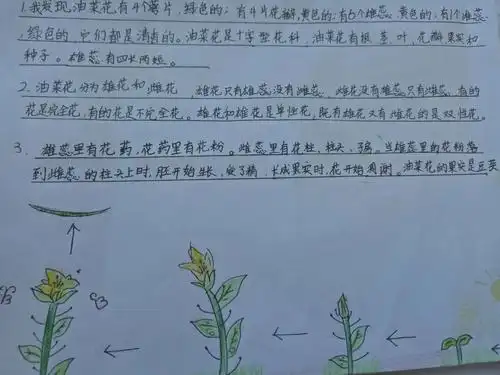 1.我发现油菜花有4个萼片，绿色的；有4片花瓣，黄色的；有6个雄蕊，黄色的；有1个雌蕊
，绿色的，它们都是清香的。油菜花是十字型花科，油菜花有根、茎、叶，花瓣，果实和
种子。雄蕊有四长两短。
2.油菜花分为雄花和雌花，雄花只有雄蕊没有雌蕊，雌花没有雄蕊只有雌蕊，有的
花是完全花，有的花是不完全花。雄花和雄花是单性花，既有雄花又有雌花的是双性花。
3、雄蕊里有花药，花药里有花粉。雌蕊里有花柱、柱头、子房。当雄蕊里的花粉落
到雌蕊的柱头上时，胚开始生长，变了精，长成果实时，花开始凋谢。油菜花的果实是豆荚